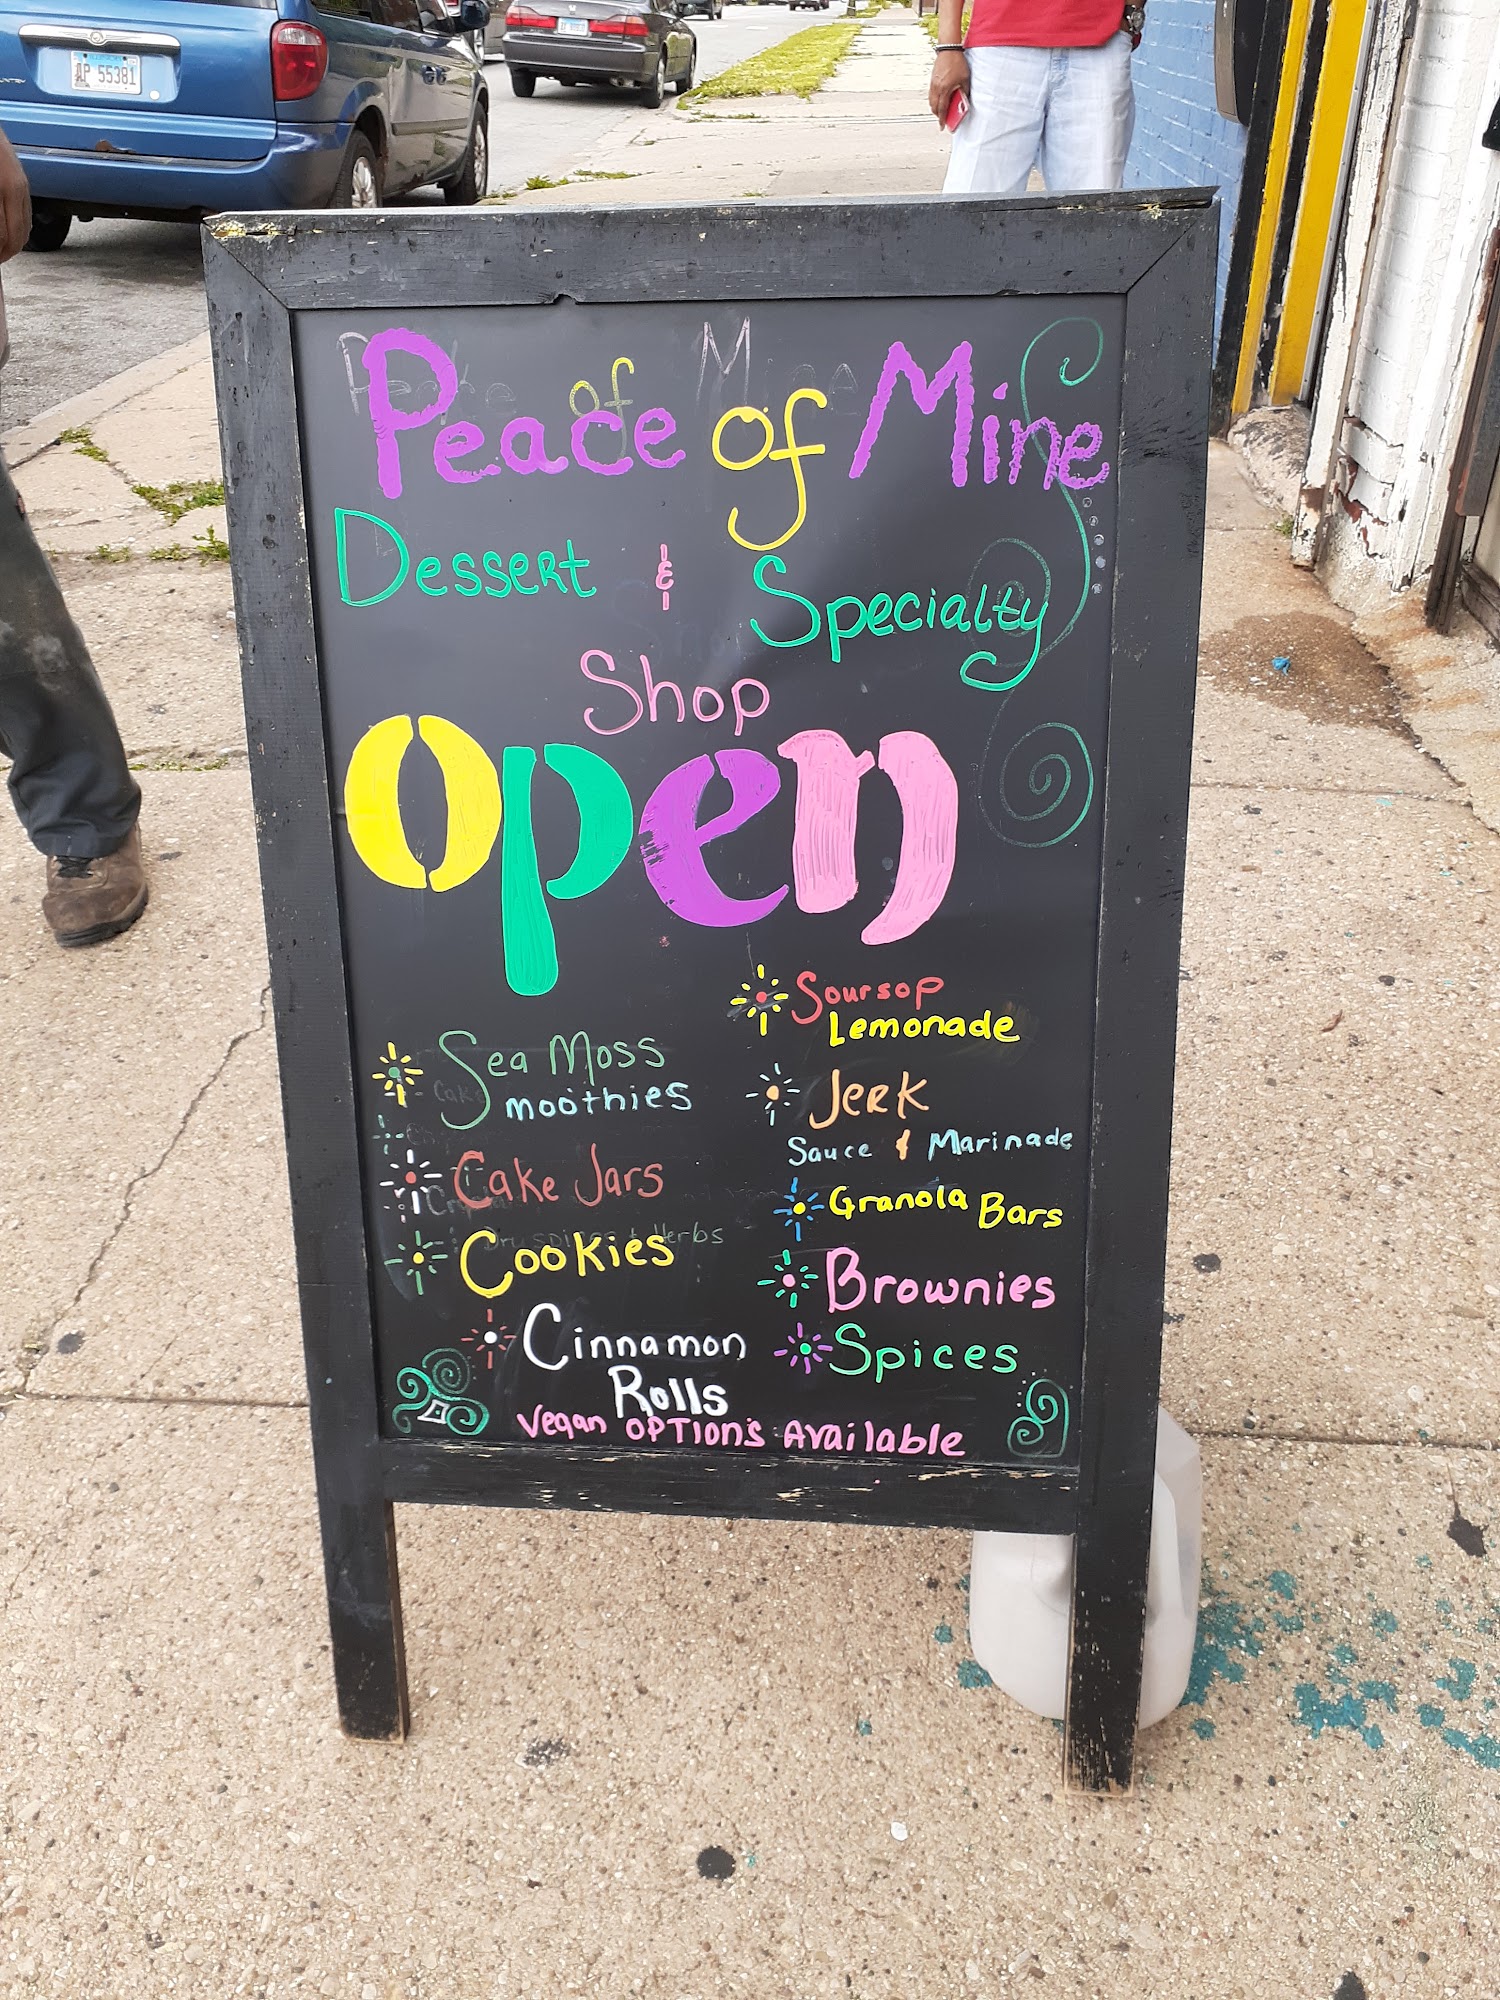 AP 55381
Peace of Mine
Peace of Mine
Dessert & Specialty
Shop
open
Sea Moss
Smoothies
Cake Jars
Cookies
Dry spices & Herbs
Cinnamon
Rolls
Soursop
Lemonade
Jerk
Sauce & Marinade
Granola Bars
Brownies
Spices
Vegan OPTION'S Available